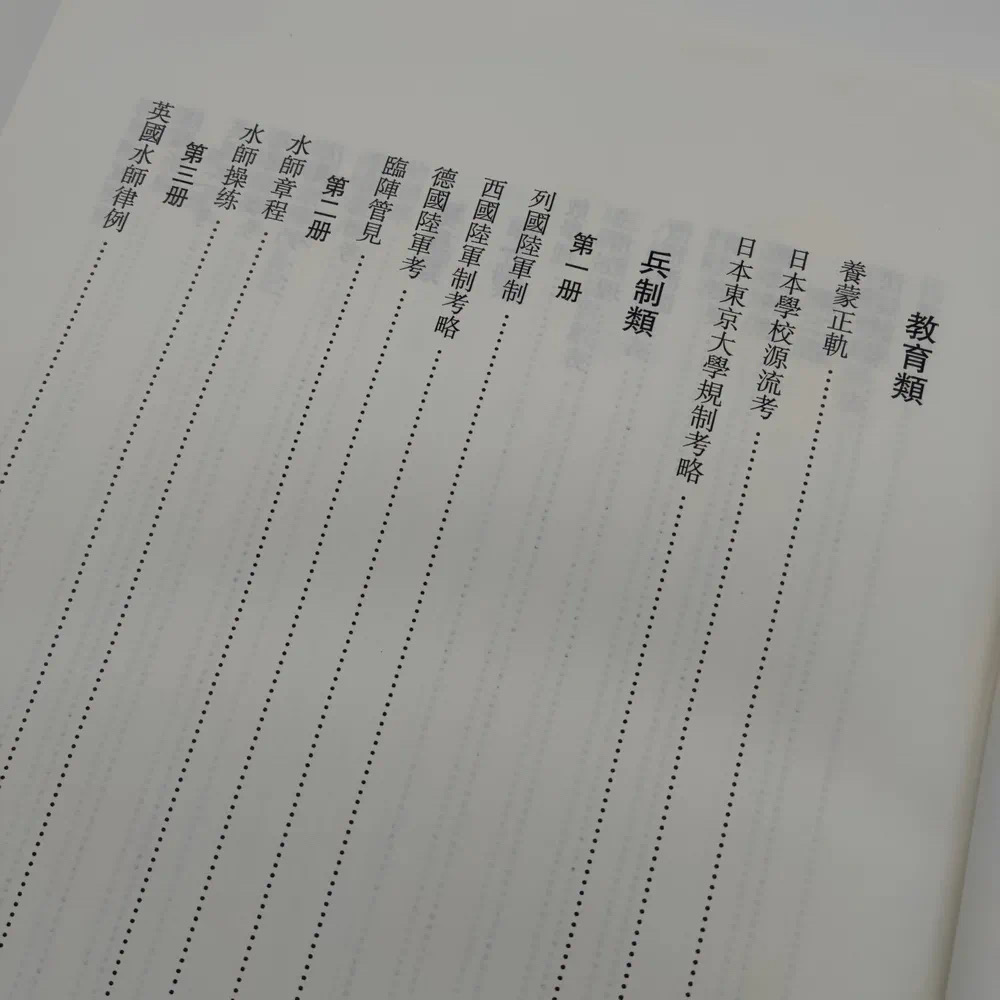 教育類
養蒙正軌
日本學校源流考
日本東京大學規制考略
兵制類
第一册
列國陸軍制
西國陸軍制考略
德國陸軍考
臨陣管見
第二册
水師章程
水師操练
第三册
英國水師律例